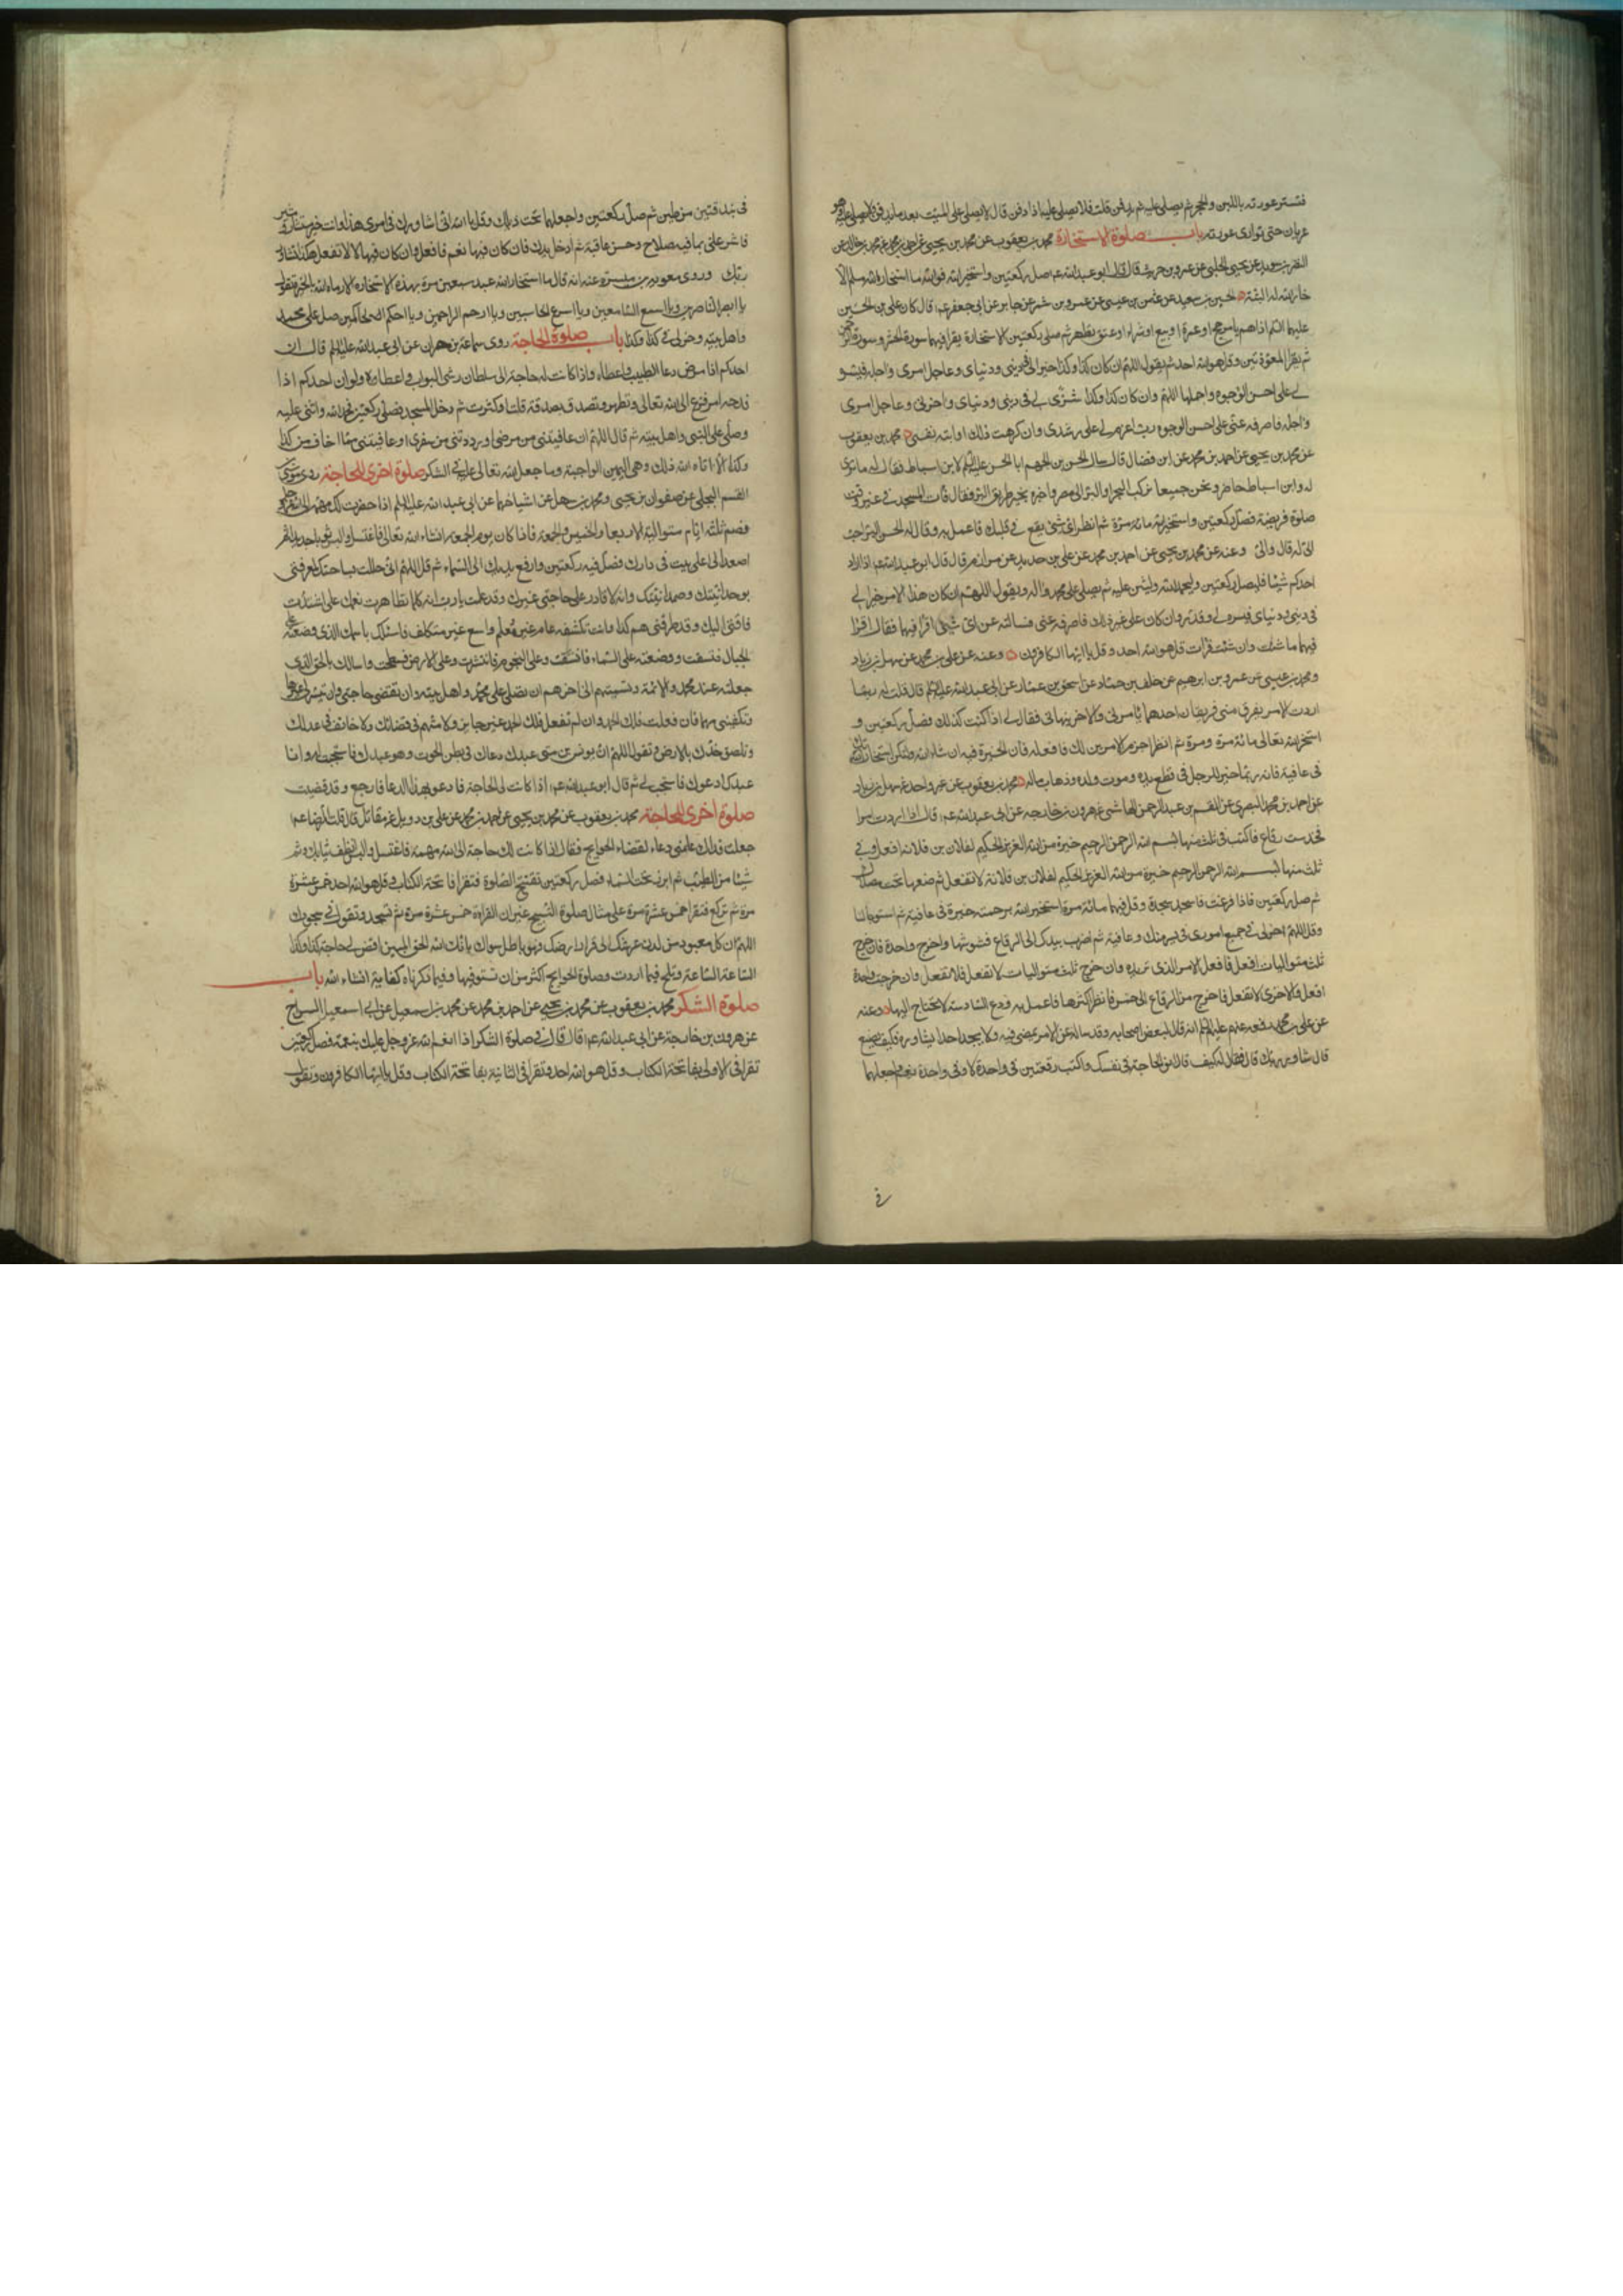 فتستر عورته باللبن والحجر ثم يصلى عليه ثم يدفن قلت فلا يصلى عليه اذا دفن قال لا يصلى على الميت بعد ما يدفن ولا يصلى عليه وهو
عريان حتى توارى عورته باب صلوة الاستخارة محمد بن يعقوب عن محمد بن يحيى عن احمد بن محمد عن محمد بن خالد عن
النضر بن سويد عن يحيى الحلبى عن عمرو بن حريث قال قال ابو عبد الله عم صل ركعتين واستخر الله فوالله ما استخار الله مسلم الا
خار الله له البتة الحسين بن سعيد عن عثمن بن عيسى عن عمرو بن شمر عن جابر عن ابى جعفر عم قال كان على بن الحسين
عليهما السلم اذا هم بامر حج او عمرة او بيع او شراء او عتق تطهر ثم صلى ركعتين للاستخارة يقرا فيهما سورة الحشر وسورة الرحمن
ثم يقرا المعوذتين وقل هو الله احد ثم يقول اللهم ان كان كذا وكذا خيرا لى فى دينى ودنياى وعاجل امرى واجله فيسره
لى على احسن الوجوه واجملها اللهم وان كان كذا وكذا شرا لى فى دينى ودنياى واخرتى وعاجل امرى
واجله فاصرفه عنى على احسن الوجوه رب اعزم لى على رشدى وان كرهت ذلك او ابته نفسى محمد بن يعقوب
عن محمد بن يحيى عن احمد بن محمد عن ابن فضال قال سال الحسن بن الجهم ابا الحسن عليه السلم لابن اسباط فقال له ما ترى
له وابن اسباط حاضر ونحن جميعا نركب البحر او البر الى مصر واخبره بخير طريق البر فقال فات المسجد فى غير وقت
صلوة فريضة فصل ركعتين واستخر الله مائة مرة ثم انظر اى شئ يقع فى قلبك فاعمل به وقال له الحسن البر احب
الى له قال والى وعنه عن محمد بن يحيى عن احمد بن محمد عن على بن حديد عن مرازم قال قال ابو عبد الله عم اذا اراد
احدكم شيئا فليصل ركعتين وليحمد الله وليثن عليه ثم يصلى على محمد واله ويقول اللهم ان كان هذا الامر خيرا لى
فى دينى ودنياى فيسره لى وقدره وان كان على غير ذلك فاصرفه عنى فسالته عن اى شئ اقرا فيهما فقال اقرا
فيهما ما شئت وان شئت قرات قل هو الله احد وقل يا ايها الكافرون وعنه عن على بن محمد عن سهل بن زياد
ومحمد بن عيسى عن عمرو بن ابرهيم عن خلف بن حماد عن اسحق بن عمار عن ابى عبد الله عليه السلم قال قلت له ربما
اردت الامر يفرق منى فريقان احدهما يامرنى والاخر ينهانى فقال لى اذا كنت كذلك فصل ركعتين و
استخر الله تعالى مائة مرة ومرة ثم انظر اجزم الامرين لك فافعله فان الخيرة فيه ان شاء الله ولتكن استخارتك
فى عافية فانه ربما خير للرجل فى قطع يده وموت ولده وذهاب ماله محمد بن يعقوب عن غير واحد عن سهل بن زياد
عن احمد بن محمد البصرى عن القسم بن عبد الرحمن الهاشمى عن هرون بن خارجه عن ابى عبد الله عم قال اذا اردت امرا
فخذ ست رقاع فاكتب فى ثلث منها بسم الله الرحمن الرحيم خيرة من الله العزيز الحكيم لفلان بن فلانة افعل وفى
ثلث منها بسم الله الرحمن الرحيم خيرة من الله العزيز الحكيم لفلان بن فلانة لا تفعل ثم ضعها تحت مصلاك
ثم صل ركعتين فاذا فرغت فاسجد سجدة وقل فيها مائة مرة استخير الله برحمته خيرة فى عافية ثم استو جالسا
وقل اللهم اختر لى فى جميع امورى فى يسر منك وعافية ثم اضرب بيدك الى الرقاع فشوشها واخرج واحدة فان خرج
ثلث متواليات افعل فافعل الامر الذى تريده وان خرج ثلث متواليات لا تفعل فلا تفعل وان خرجت واحدة
افعل والاخرى لا تفعل فاخرج من الرقاع الى خمس فانظر اكثرها فاعمل به ودع السادسة لا تحتاج اليها وعنه
عن على بن محمد رفعه عنهم عليهم السلم انه قال لبعض اصحابه وقد ساله عن الامر يمضى فيه ولا يجد احدا يشاوره فكيف يصنع
قال شاور ربك قال فقال له كيف قال انو الحاجة فى نفسك واكتب رقعتين فى واحدة لا وفى واحدة نعم واجعلهما
فى
فى بندقتين من طين ثم صل ركعتين واجعلهما تحت ذيلك وقل يا الله انى اشاورك فى امرى هذا وانت خير مستشار ومشير
فاشر على بما فيه صلاح وحسن عاقبة ثم ادخل يدك فان كان فيها نعم فافعل وان كان فيها لا لا تفعل هكذا تشاور
ربك وروى معوية بن ميسرة عنه انه قال ما استخار الله عبد سبعين مرة بهذه الاستخارة الا رماه الله بالخيرة يقول
يا ابصر الناظرين ويا اسمع السامعين ويا اسرع الحاسبين ويا ارحم الراحمين ويا احكم الحاكمين صل على محمد
واهل بيته وخر لى فى كذا وكذا باب صلوة الحاجة روى سماعة بن مهران عن ابى عبد الله عليه السلم قال ان
احدكم اذا مرض دعا الطبيب واعطاه واذا كانت له حاجة الى سلطان رشى البواب واعطاه ولو ان احدكم اذا
فدحه امر فزع الى الله تعالى وتطهر وتصدق بصدقة قلت او كثرت ثم دخل المسجد فصلى ركعتين فحمد الله واثنى عليه
وصلى على النبى واهل بيته ثم قال اللهم ان عافيتنى من مرضى او رددتنى من سفرى او عافيتنى مما اخاف من كذا
وكذا الا اتاه الله ذلك وهى اليمين الواجبة وما جعل الله تعالى عليه فى الشكر صلوة اخرى للحاجة روى موسى بن
القسم البجلى عن صفوان بن يحيى ومحمد بن سهل عن اشياخهما عن ابى عبد الله عليه السلم اذا حضرت لك حاجة مهمة الى الله عز وجل
فصم ثلثة ايام متوالية الاربعاء والخميس والجمعة فاذا كان يوم الجمعة انشاء الله تعالى فاغتسل والبس ثوبا جديدا ثم
اصعد الى اعلى بيت فى دارك فصل فيه ركعتين وارفع يديك الى السماء ثم قل اللهم انى حللت بساحتك لمعرفتى
بوحدانيتك وصمدانيتك وانه لا قادر على حاجتى غيرك وقد علمت يا رب انه كلما تظاهرت نعمك على اشتدت
فاقتى اليك وقد طرقنى هم كذا وانت بكشفه عالم غير معلم واسع غير متكلف فاسئلك باسمك الذى وضعته على
الجبال فنسفت ووضعته على السماء فانشقت وعلى النجوم فانتثرت وعلى الارض فسطحت واسالك بالحق الذى
جعلته عند محمد والائمة وتسميتهم الى اخرهم ان تصلى على محمد واهل بيته وان تقضى حاجتى وان تيسر لى عسرها
وتكفينى مهمها فان فعلت فلك الحمد وان لم تفعل فلك الحمد غير جاير ولا متهم فى قضائك ولا حائف فى عدلك
وتلصق خدك بالارض وتقول اللهم ان يونس بن متى عبدك دعاك فى بطن الحوت وهو عبدك فاستجبت له وانا
عبدك ادعوك فاستجب لى ثم قال ابو عبد الله عم اذا كانت لى الحاجة فادعو بهذا الدعا فارجع وقد قضيت
صلوة اخرى للحاجة محمد بن يعقوب عن محمد بن يحيى عن احمد بن محمد عن على بن دويل عن مقاتل قال قلت للرضا عم
جعلت فداك علمنى دعاء لقضاء الحوايج فقال اذا كانت لك حاجة الى الله مهمة فاغتسل والبس انظف ثيابك وشم
شيئا من الطيب ثم ابرز تحت السماء فصل ركعتين تفتتح الصلوة فتقرا فاتحة الكتاب وقل هو الله احد خمس عشرة
مرة ثم تركع فتقرا خمس عشرة مرة على مثال صلوة التسبيح غير ان القراءة خمس عشرة مرة ثم تسجد وتقول فى سجودك
اللهم ان كل معبود من لدن عرشك الى قرار ارضك فهو باطل سواك بانك الله الحق المبين اقض لى حاجة كذا وكذا
الساعة الساعة وتلح فيما اردت وصلوة الحوايج اكثر من ان نستوفيها وفيما ذكرناه كفاية انشاء الله باب
صلوة الشكر محمد بن يعقوب عن محمد بن يحيى عن احمد بن محمد عن محمد بن اسمعيل عن ابى اسمعيل السراج
عن هرون بن خارجة عن ابى عبد الله عم قال قال فى صلوة الشكر اذا انعم الله عز وجل عليك بنعمة فصل ركعتين
تقرا فى الاولى بفاتحة الكتاب وقل هو الله احد وتقرا فى الثانية بفاتحة الكتاب وقل يا ايها الكافرون وتقول